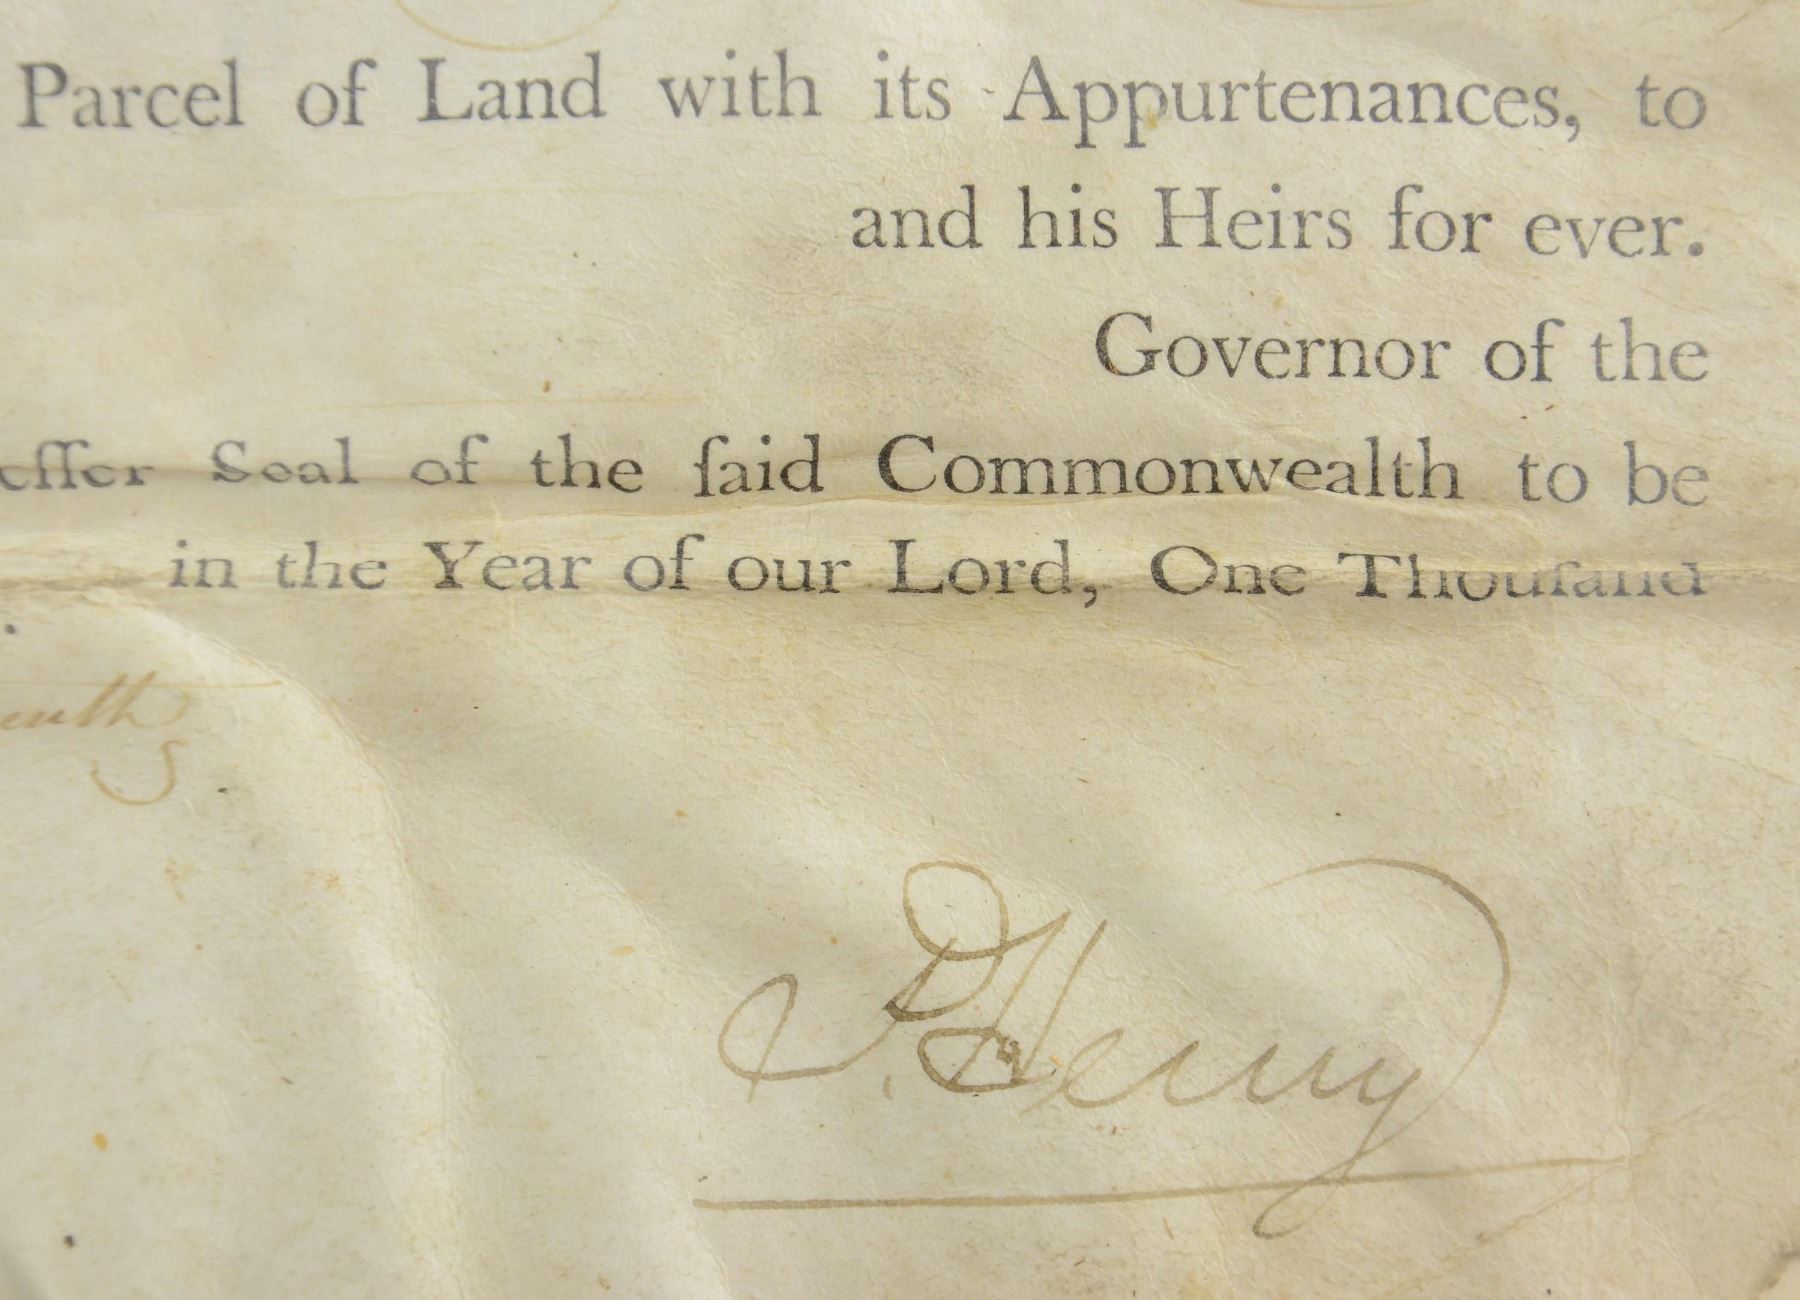 Parcel of Land with its Appurtenances, to
and his Heirs for ever.
Governor of the
eſſer Seal of the ſaid Commonwealth to be
in the Year of our Lord, One Thouſand
P. Henry